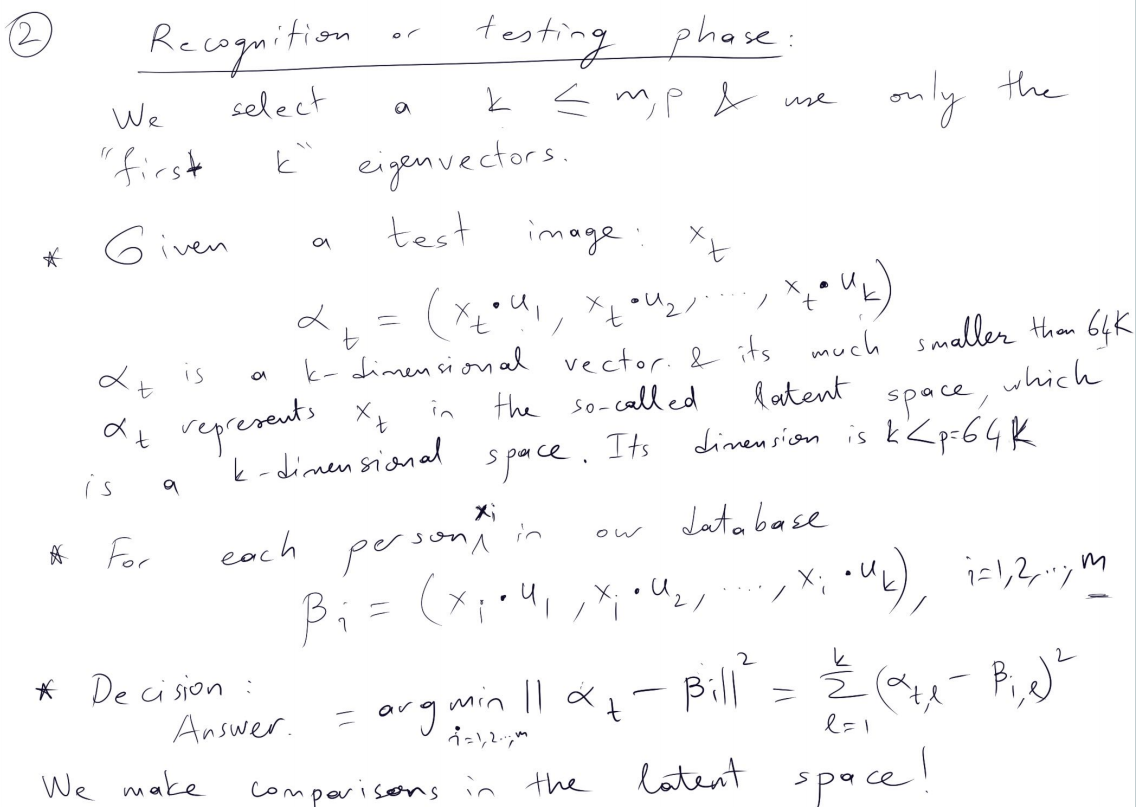 ② Recognition or testing phase:
We select a k ≤ m,p & use only the
"first k" eigenvectors.
* Given a test image: x_t
α_t = (x_t • u_1, x_t • u_2, ...., x_t • u_k)
α_t is a k-dimensional vector. & its much smaller than 64K
α_t represents x_t in the so-called latent space, which
is a k-dimensional space. Its dimension is k<p=64K
* For each person x_i in our database
β_i = (x_i • u_1, x_i • u_2, ...., x_i • u_k), i=1,2,..., m
* Decision:
Answer. = argmin_{i=1,2..,m} || α_t - β_i ||^2 = Σ_{l=1}^{k} (α_{t,l} - β_{i,l})^2
We make comparisons in the latent space!